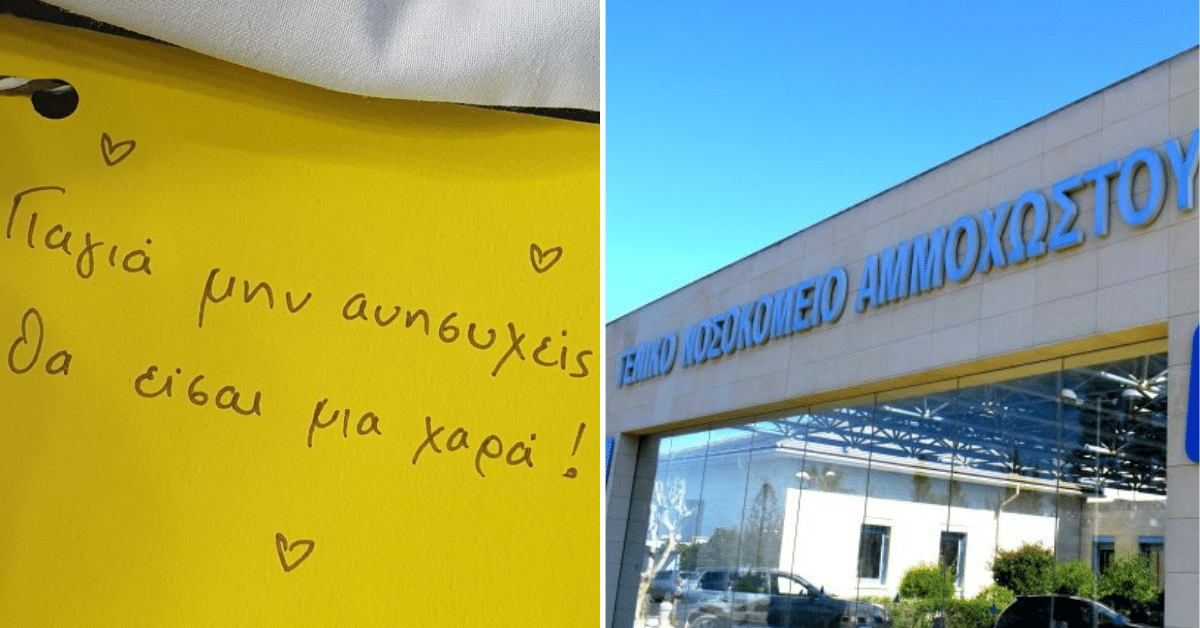 Γιαγιά μην αυησυχείς
θα είσαι μια χαρά!
ΓΕΝΙΚΟ ΝΟΣΟΚΟΜΕΙΟ ΑΜΜΟΧΩΣΤΟΥ